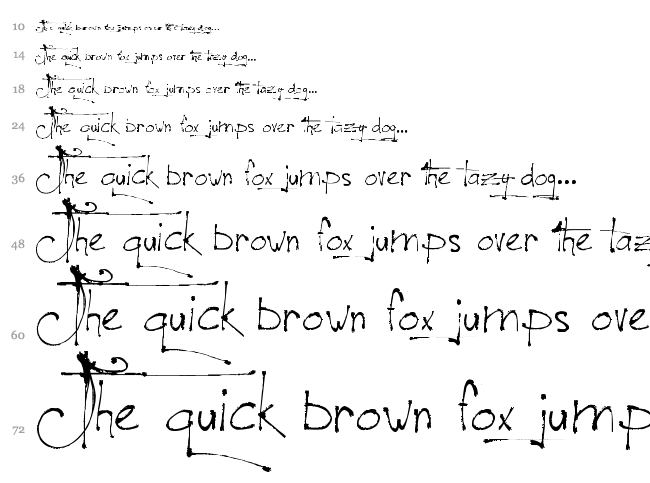 10 The quick brown fox jumps over the lazy dog...
14 The quick brown fox jumps over the lazy dog...
18 The quick brown fox jumps over the lazy dog...
24 The quick brown fox jumps over the lazy dog...
36 The quick brown fox jumps over the lazy dog...
48 The quick brown fox jumps over the laz
60 The quick brown fox jumps ove
72 The quick brown fox jump